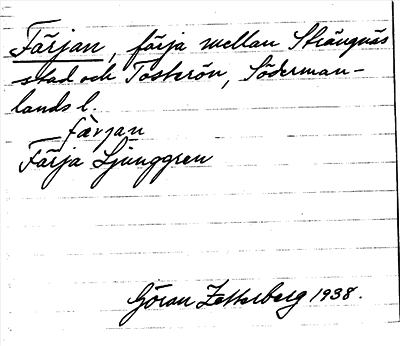 Färjan, färja mellan Strängnäs
stad och Tosterön, Söderman-
lands l.
färjan
Färja Ljunggren
Göran Zetterberg 1938.